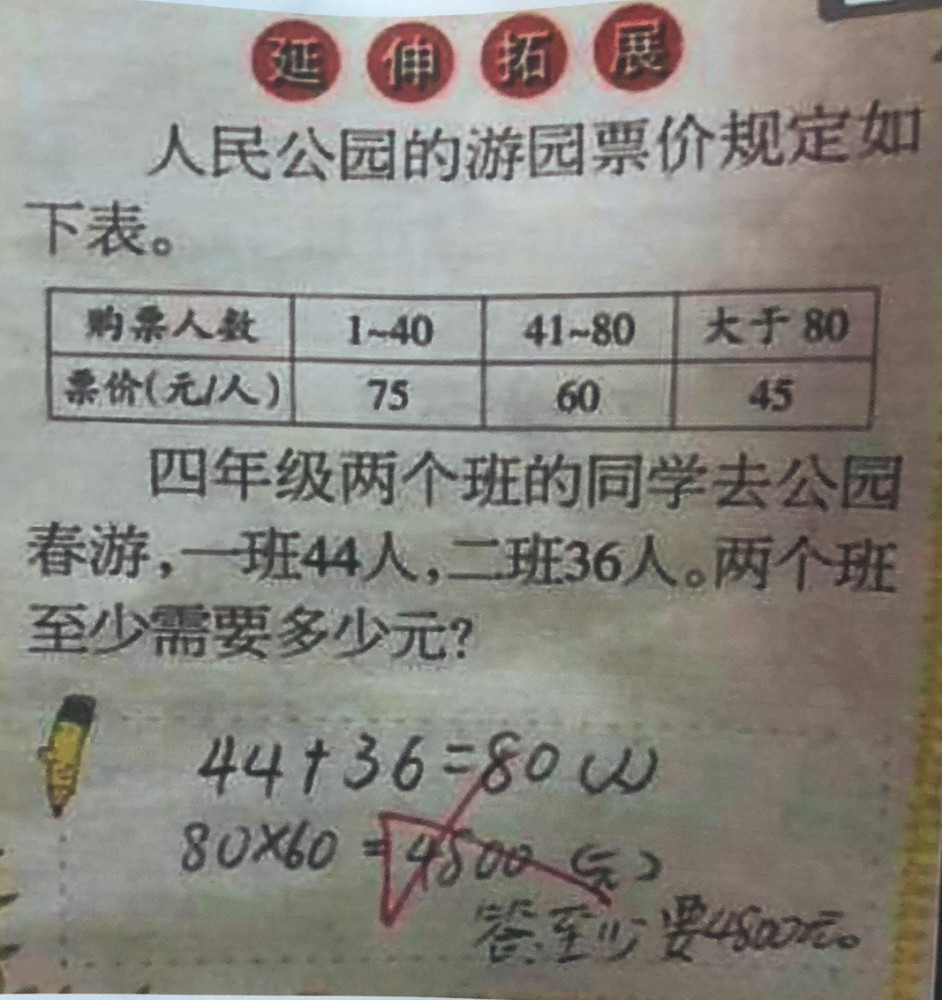 延伸拓展
人民公园的游园票价规定如
下表。
购票人数 1~40 41~80 大于80
票价(元/人) 75 60 45
四年级两个班的同学去公园
春游,一班44人,二班36人。两个班
至少需要多少元?
44+36=80(人)
80×60=4800(元)
答:至少要4800元。